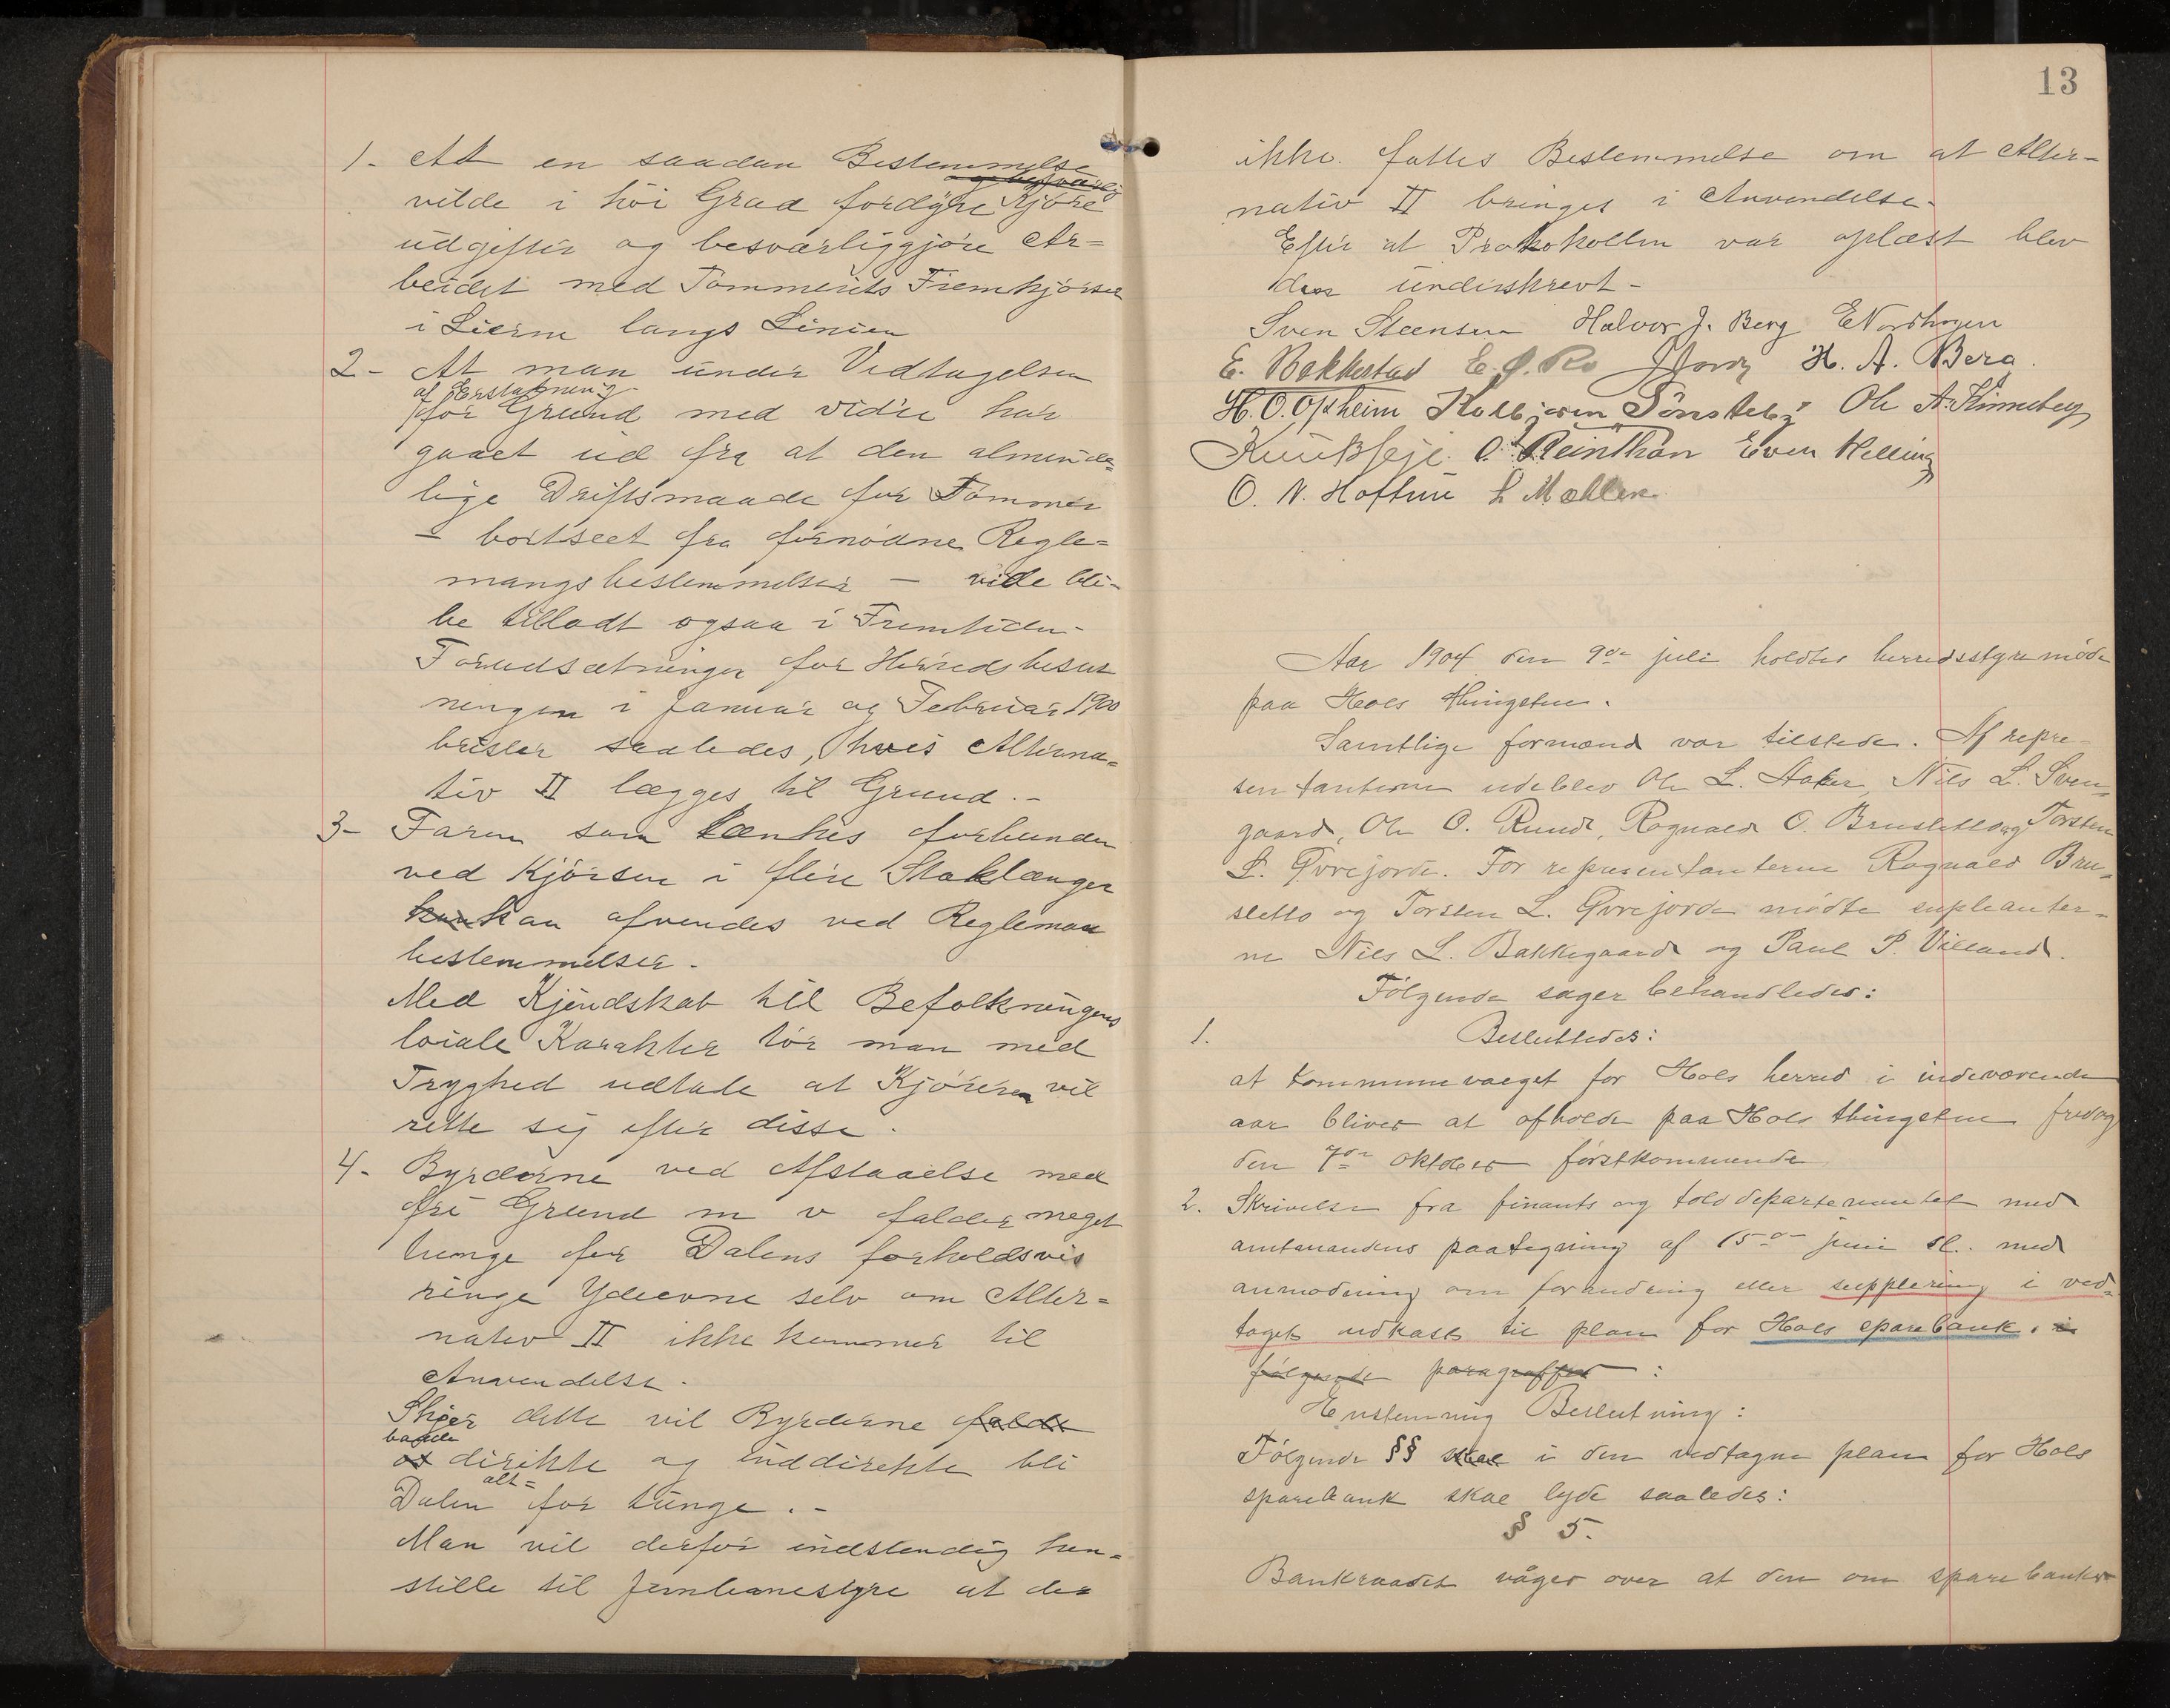 1- At en saadan Bestemmelse
og besværlig
vilde i höi Grad fordÿre Kjöre
udgifter og besværliggjöre Ar=
beidet med Tömmerets Fremkjörsel
i Lierne langs Linien
2- At man under Vedtagelsen
af Erstatning
for Grund med videre har
gaaet ud fra at den alminde=
lige Driftsmaade for Tömmer
- bortseet fra fornödne Regle=
mangsbestemmelser - vilde bli-
be tilladt ogsaa i Fremtiden-
Forudsætninger for Herredsbeslut
ningen i Januar og Februar 1900
brister saaledes, hvis Alterna=
tiv II lægges til Grund.-
3- Faren som tænkes forbunden
ved Kjörsen i flere Stoklænger
kan kan afvendes ved Regleman
bestemmelser.
Med Kjendskab til Befolkningens
loiale Karakter tör man med
Tryghed udtale at Kjörerne vil
rette sig efter disse.
4- Byrderne ved Afstaaelse med
fri Grund m v falder meget
tunge for Dalens forholdsvis
ringe Ydeevne selv om Alter=
nativ II ikke kommer til
Anvendelse.
Skjer dette vil Byrderne falde
baade
direkte og inddirekte bli
alt=
Dalen for tunge.-
Man vil derfor indstendig hen=
stille til Jernbanestyre at der
13
ikke fattes Bestemmelse om at Alter=
nativ II bringes i Anvendelse-
Efter at Protokollen var oplæst blev
den underskrevt-
Sven Steensen Halvor J. Berg E Nordhagen
E. Bakkestad E. O. Ro H. A. Berg.
H. O. Opheim Kolbjørn Sönsteby Ole A. Skinneberg
Knut Seje. O. Reinthon Even Helling
O. N. Hoftun L Mæhlen
Aar 1904 den 9de juli holdtes herredsstyremöde
paa Hols thingstue.
Samtlige formænd var tilstede. Af repre-
sentanterne udeblev Ole L. Aaker, Nils L. Sven-
gaard, Ole O. Rund, Ragnvald O. Brusletto og Torsten
L. Gvrejorde. For representanterne Ragnvald Bru-
sletto og Torsten L. Gvrejorde mödte supleanter-
ne Nils L. Bakkegaard og Paul P. Villand.
Fölgende sager behandledes:
1. Besluttedes:
at kommunevalget for Hols herred i indeværende
aar bliver at afholde paa Hols thingstue fredag
den 7de oktober förstkommende
2. Skrivelse fra finants og tolddepartementet med
amtmandens paategning af 15de juni sl. med
anmodning om forandring eller supplering i ved-
taget udkast til plan for Hols sparebank. i
fölgende paragraffer:
Enstemmig Beslutning:
Fölgende §§ skal i den vedtagne plan for Hols
sparebank skal lyde saaledes:
§ 5.
Bankraadet våger over at den om sparebanker